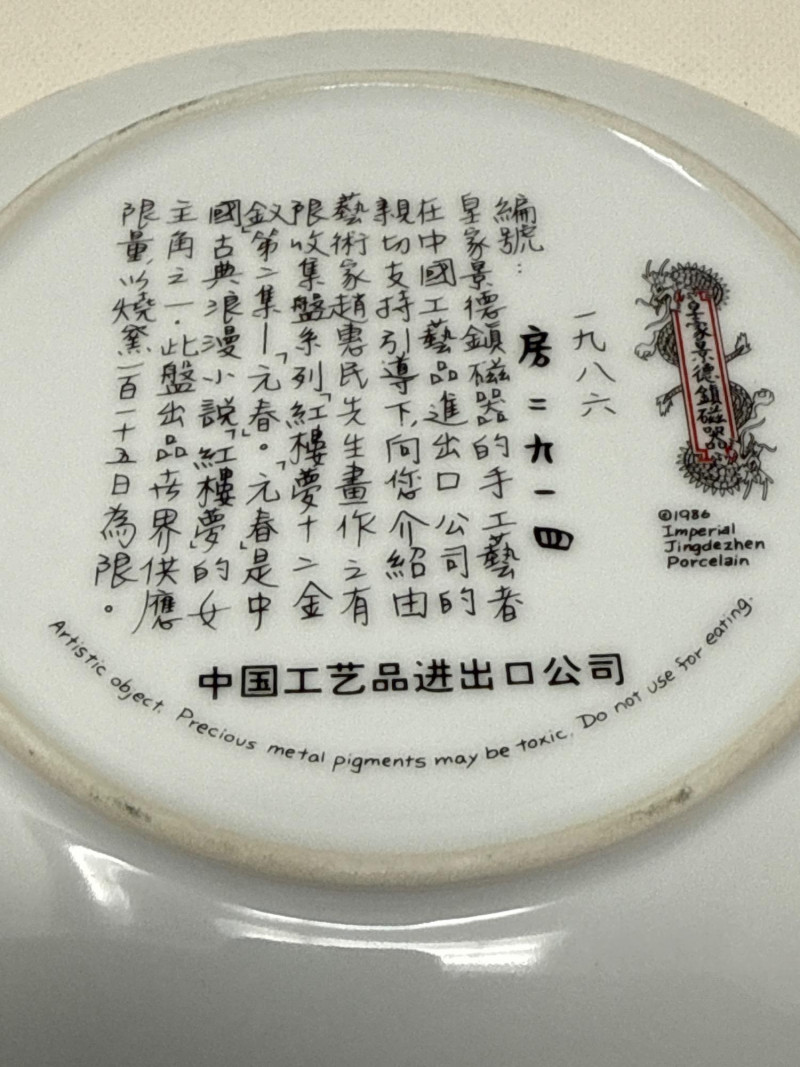 皇家景德鎮磁器
©1986
Imperial
Jingdezhen
Porcelain
一九八六
編號：
房二九一四
皇家景德鎮磁器的手工藝者
在中國工藝品進出口公司的
親切支持引導下，向您介紹由
藝術家趙惠民先生畫作之有
限收集盤系列「紅樓夢十二金
釵」第二集—「元春」。「元春」是中
國古典浪漫小說「紅樓夢」的女
主角之一．此盤出品世界供應
限量，以燒窯一百一十五日為限。
中国工艺品进出口公司
Artistic object. Precious metal pigments may be toxic. Do not use for eating.